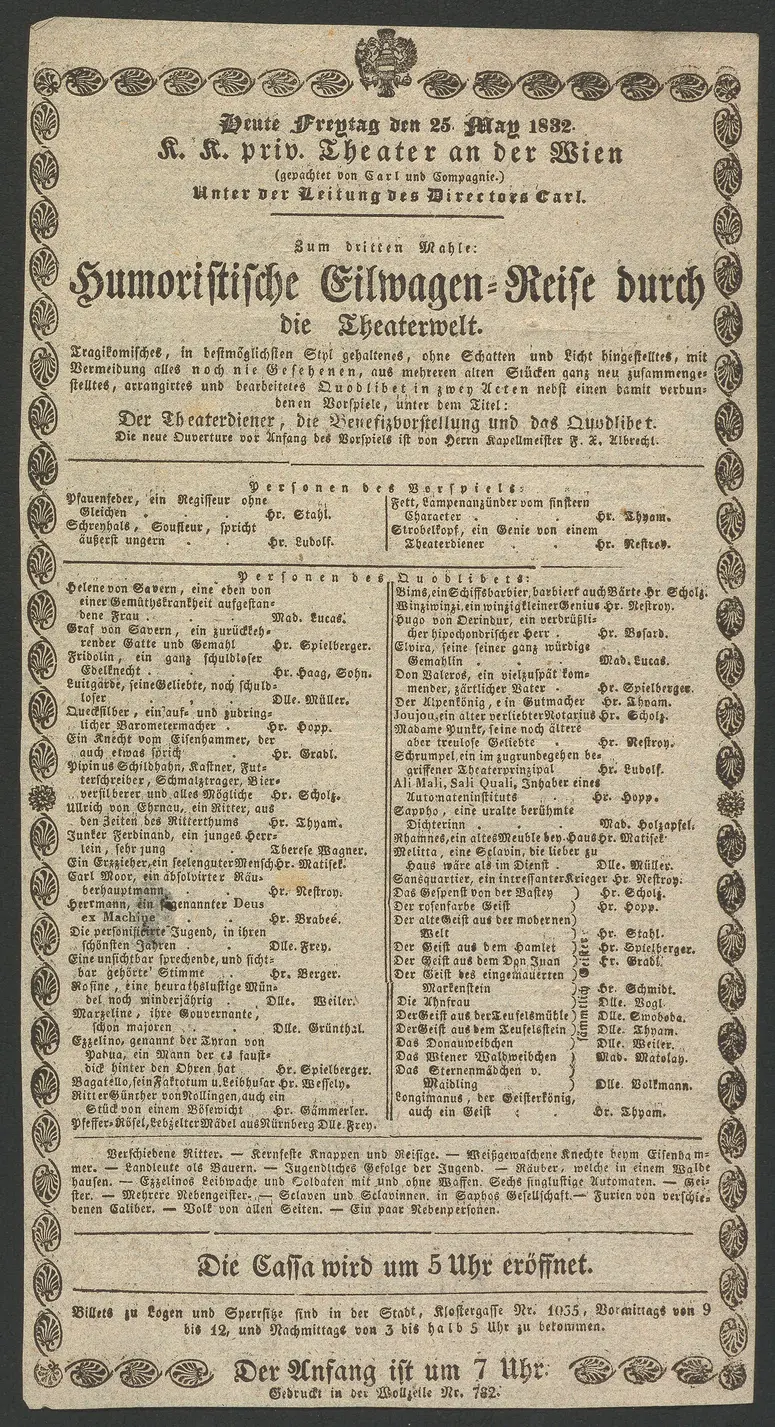 Heute Freytag den 25. May 1832.
K. K. priv. Theater an der Wien
(gepachtet von Carl und Compagnie.)
Unter der Leitung des Directors Carl.
Zum dritten Mahle:
Humoristische Eilwagen-Reise durch
die Theaterwelt.
Tragikomisches, in bestmöglichsten Styl gehaltenes, ohne Schatten und Licht hingestelltes, mit
Vermeidung alles noch nie Gesehenen, aus mehreren alten Stücken ganz neu zusammenge-
stelltes, arrangirtes und bearbeitetes Quodlibet in zwey Acten nebst einen damit verbun-
denen Vorspiele, unter dem Titel:
Der Theaterdiener, die Benefizvorstellung und das Quodlibet.
Die neue Ouverture vor Anfang des Vorspiels ist von Herrn Kapellmeister F. X. Albrechl.
Personen des Vorspiels:
Pfauenfeder, ein Regisseur ohne
Gleichen . . . Hr. Stahl.
Schreyhals, Soufleur, spricht
äußerst ungern . . Hr. Ludolf.
Fett, Lampenanzünder vom finstern
Character . . . Hr. Thyam.
Strobelkopf, ein Genie von einem
Theaterdiener . . Hr. Nestroy.
Personen des Quodlibets:
Helene von Savern, eine eben von
einer Gemüthskrankheit aufgestan-
dene Frau . . . Mad. Lucas.
Graf von Savern, ein zurückkeh-
render Gatte und Gemahl Hr. Spielberger.
Fridolin, ein ganz schuldloser
Edelknecht . . . Hr. Haag, Sohn.
Luitgarde, seine Geliebte, noch schuld-
loser . . . Dlle. Müller.
Quecksilber, ein auf- und zudring-
licher Barometermacher . Hr. Hopp.
Ein Knecht vom Eisenhammer, der
auch etwas spricht . Hr. Gradl.
Pipinus Schildhahn, Kastner, Fut-
terschreiber, Schmalztrager, Bier-
versilberer und alles Mögliche Hr. Scholz.
Ullrich von Ehrnau, ein Ritter, aus
den Zeiten des Ritterthums Hr. Thyam.
Junker Ferdinand, ein junges Herr-
lein, sehr jung . Therese Wagner.
Ein Erzzieher, ein seelenguter Mensch Hr. Matisek.
Carl Moor, ein absolvirter Räu-
berhauptmann . . Hr. Nestroy.
Herrmann, ein sogenannter Deus
ex Machine . . Hr. Brabeé.
Die personifizirte Jugend, in ihren
schönsten Jahren . . Dlle. Frey.
Eine unsichtbar sprechende, und sicht-
bar gehörte Stimme . Hr. Berger.
Rosine, eine heurathslustige Mün-
del noch minderjährig . Dlle. Weiler.
Marzeline, ihre Gouvernante,
schon majoren . . Dlle. Grünthal.
Ezzelino, genannt der Tyran von
Padua, ein Mann der es faust-
dick hinter den Ohren hat Hr. Spielberger.
Bagatello, sein Faktotum u. Leibhusar Hr. Wessely.
Ritter Günther von Nollingen, auch ein
Stück von einem Bösewicht Hr. Gämmerler.
Pfeffer-Rösel, Lebzelter Mädel aus Nürnberg Dlle. Frey.
Bims, ein Schiffsbarbier, barbiert auch Bärte Hr. Scholz.
Winziwinzi, ein winzig kleiner Genius Hr. Nestroy.
Hugo von Oerindur, ein verdrüßli-
cher hipochondrischer Herr . Hr. Bosard.
Elvira, seine seiner ganz würdige
Gemahlin . . . Mad. Lucas.
Don Valeros, ein vielzuspät kom-
mender, zärtlicher Vater . Hr. Spielberger.
Der Alpenkönig, ein Gutmacher Hr. Thyam.
Joujou, ein alter verliebter Notarius Hr. Scholz.
Madame Punkt, seine noch ältere
aber treulose Geliebte . Hr. Nestroy.
Schrumpel, ein im zugrundegehen be-
griffener Theaterprinzipal Hr. Ludolf.
Ali Mali, Sali Quali, Inhaber eines
Automateninstituts . . Hr. Hopp.
Sappho, eine uralte berühmte
Dichterinn . . Mad. Holzapfel.
Rhamnes, ein altes Meuble bey Haus Hr. Matisek
Melitta, eine Sclavin, die lieber zu
Haus wäre als im Dienst . Dlle. Müller.
Sansquartier, ein intressanter Krieger Hr. Nestroy.
Das Gespenst von der Bastey ) Hr. Scholz.
Der rosenfarbe Geist ) Hr. Hopp.
Der alte Geist aus der modernen )
Welt ) Hr. Stahl.
Der Geist aus dem Hamlet ) Hr. Spielberger.
Der Geist aus dem Don Juan ) Hr. Gradl.
Der Geist des eingemauerten )
Markenstein ) Hr. Schmidt.
Die Ahnfrau ) Dlle. Vogl.
Der Geist aus der Teufelsmühle ) Dlle. Swoboda.
Der Geist aus dem Teufelsstein ) Dlle. Thyam.
Das Donauweibchen ) Dlle. Weiler.
Das Wiener Waldweibchen ) Mad. Matolay.
Das Sternenmädchen v. )
Maidling ) Dlle. Volkmann.
sämmtlich Geister
Longimanus, der Geisterkönig,
auch ein Geist . . Hr. Thyam.
Verschiedene Ritter. — Kernfeste Knappen und Reisige. — Weißgewaschene Knechte beym Eisenham-
mer. — Landleute als Bauern. — Jugendliches Gefolge der Jugend. — Räuber, welche in einem Walde
hausen. — Ezzelinos Leibwache und Soldaten mit und ohne Waffen. Sechs singlustige Automaten. — Gei-
ster. — Mehrere Nebengeister. — Sclaven und Sclavinnen, in Saphos Gesellschaft. — Furien von verschie-
denen Caliber. — Volk von allen Seiten. — Ein paar Nebenpersonen.
Die Cassa wird um 5 Uhr eröffnet.
Billets zu Logen und Sperrsitze sind in der Stadt, Klostergasse Nr. 1055, Vormittags von 9
bis 12, und Nachmittags von 3 bis halb 5 Uhr zu bekommen.
Der Anfang ist um 7 Uhr.
Gedruckt in der Wollzeile Nr. 782.